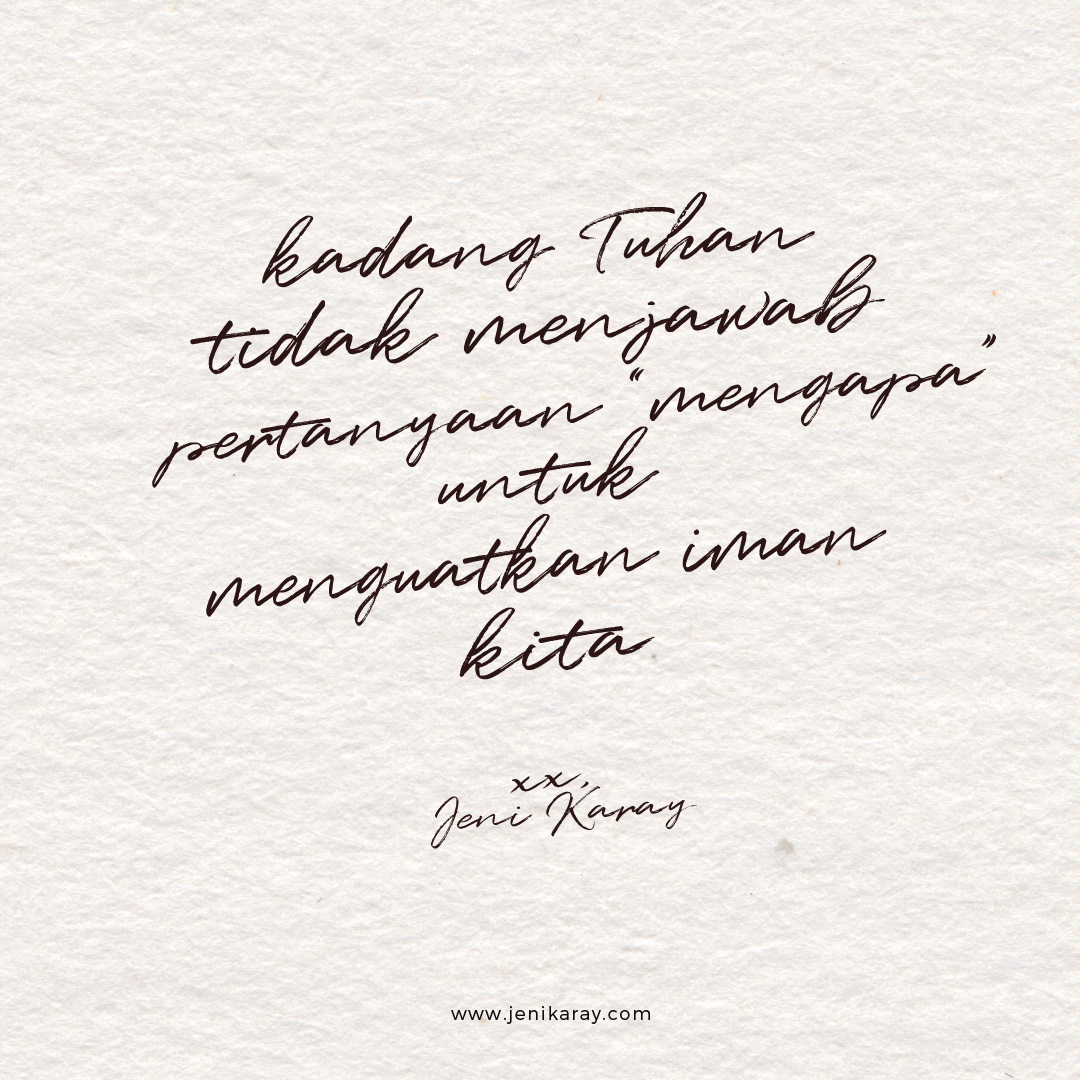 kadang Tuhan
tidak menjawab
pertanyaan “mengapa”
untuk
menguatkan iman
kita
xx,
Jeni Karay
www.jenikaray.com